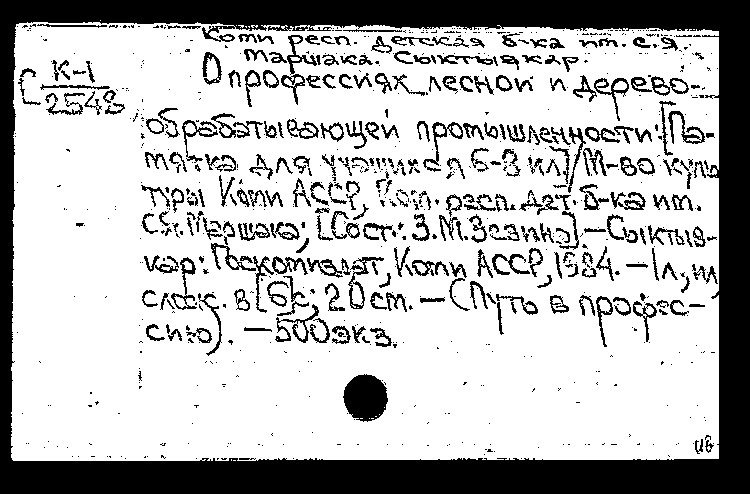 Коми респ. детская б-ка им. С.Я.
Маршака. Сыктывкар.
С К-1
2548
О профессиях лесной и дерево-
обрабатывающей промышленности: [Па-
мятка для учащихся 6-8 кл]/М-во куль
туры Коми АССР, Ком. респ. дет. б-ка им.
С.Я. Маршака; [Сост.: З.М.Зезина]. — Сыктыв-
кар: Госкомиздат, Коми АССР, 1984. — 1 л., ил,
слож. в [6]с; 20 см. — (Путь в профес-
сию). — 500 экз.